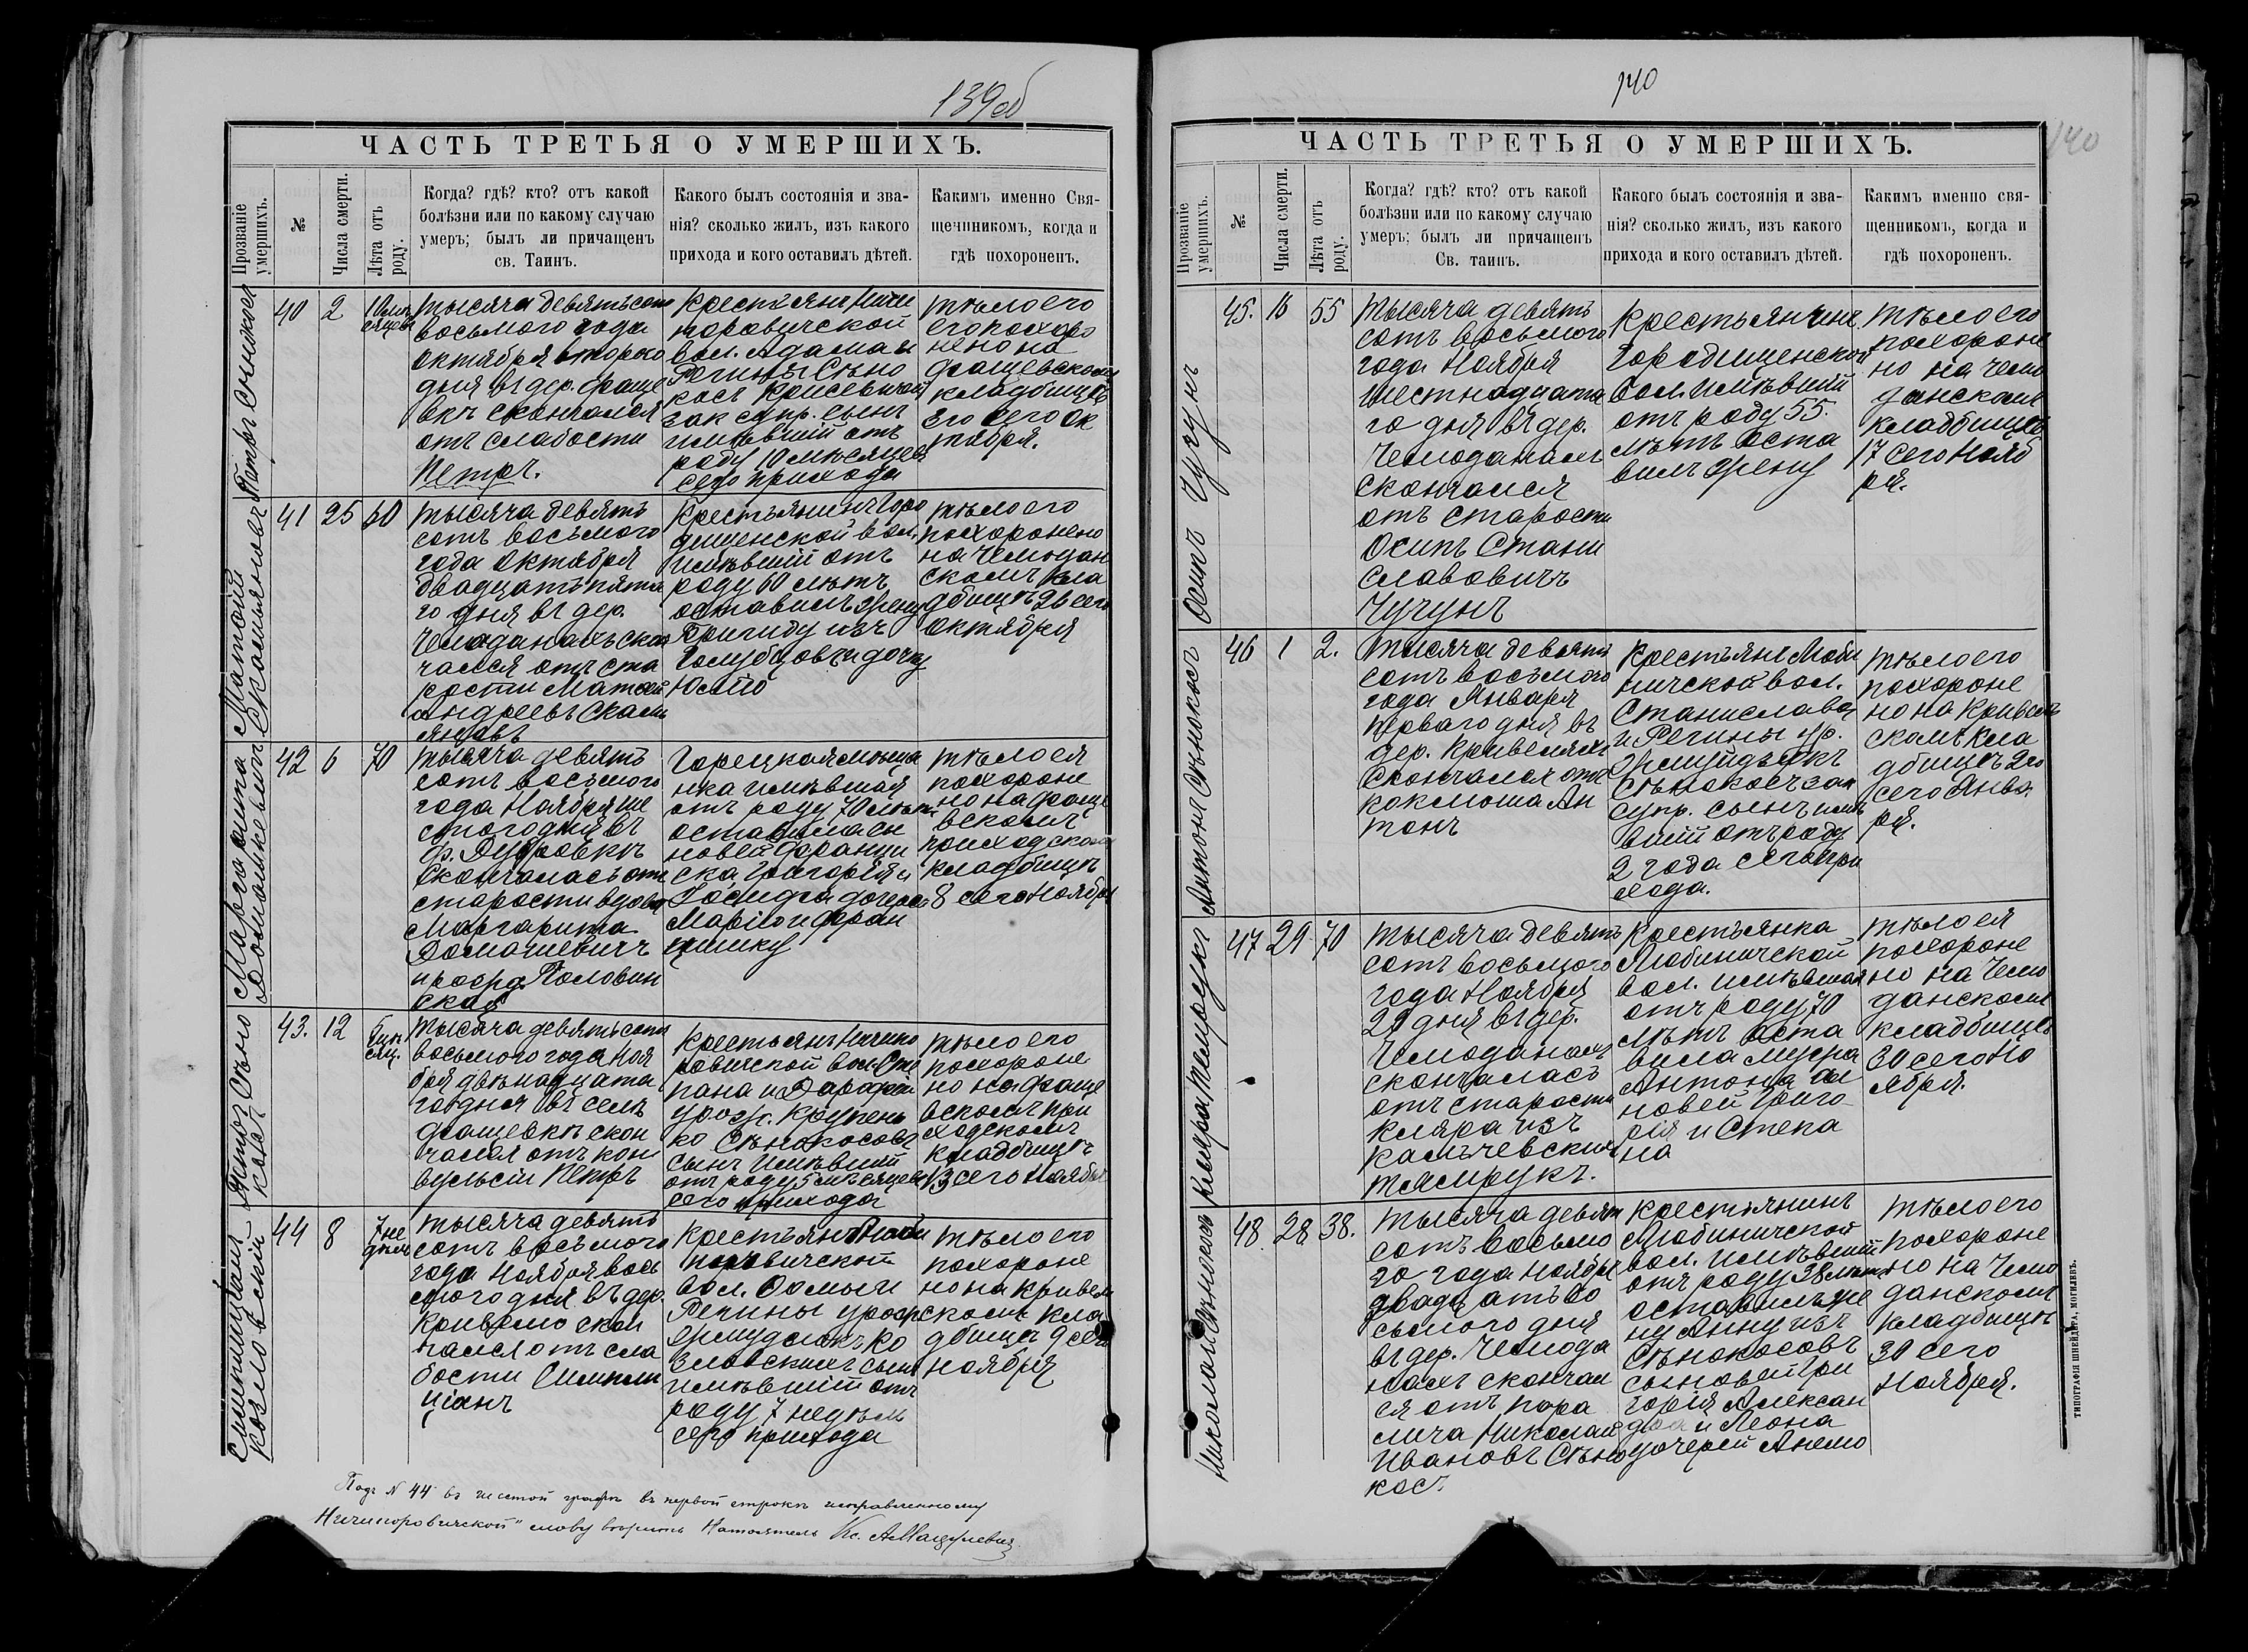 139об
ЧАСТЬ ТРЕТЬЯ О УМЕРШИХЪ.
Прозваніе умершихъ.
№
Числа смерти.
Лѣта отъ роду.
Когда? гдѣ? кто? отъ какой
болѣзни или по какому случаю
умеръ; былъ ли причащенъ
св. Таинъ.
Какого былъ состоянія и зва-
нія? сколько жилъ, изъ какого
прихода и кого оставилъ дѣтей.
Какимъ именно Свя-
щенникомъ, когда и
гдѣ похороненъ.
Петръ Сѣнокосъ
40
2
10 мѣ
сяцевъ
тысяча девятьсотъ
восьмого года
октября второго
дня въ дер. Фаще
вкѣ скончался
отъ слабости
Петръ.
крестьянъ Ничи
поровичской
вол. Адама и
Регины Сѣно
косъ
зак. супр. сынъ
имѣвшій отъ
роду 10 мѣсяцевъ
сего прихода
тѣло его
его похоро
нено на
Фащевскомъ
кладбищѣ
3го сего Ок
тября.
Матѳей
Скамьяновъ
41
25
60
тысяча девять
сотъ восьмого
года Октября
двадцать пята
го дня въ дер.
Чемоданахъ скон
чался отъ ста
рости Матѳей
Андреевъ Скамь
яновъ
крестьянинъ Горо
дищенской вол.
имѣвшій отъ
роду 60 лѣтъ
оставилъ жену
Бригиду изъ
Голубцовъ и дочку
Юлію
тѣло его
похоронено
на Чемодан
скомъ кла
дбищѣ 26 сего
Октября
Маргарита
Домашкевичъ
42
6
70
тысяча девять
сотъ восьмого
года Ноября ше
стого дня въ
ф. Дубровкѣ
скончалась отъ
старости вдова
Маргарита
Домашевичъ
урожд. Половин
ская
Горецкая мѣща
нка имѣвшая
отъ роду 70 лѣтъ
оставила сы
новей Франци
ска Григорія и
Іосифа дочерей
Марію и Фран
цишку
тѣло ея
похороне
но на Фаще
вскомъ
приходскомъ
кладбищѣ
8 сего Ноября
Петръ Сѣно
косъ
43.
12
5 мѣ
сяц.
тысяча девятьсотъ
восьмого года Ноя
бря двѣнадцата
го дня въ селѣ
Фащевкѣ скон
чался отъ кон
вульсіи Петръ
крестьянъ Ничипо
ровичской вол. Сте
пана и Дарофеи
урожд. Крупень
ко Сѣнокосовъ
сынъ имѣвшій
отъ роду 5 мѣсяцевъ
сего прихода
тѣло его
похороне
но на Фаще
вскомъ при
ходскомъ
кладбищѣ
13 сего Ноября
Симплиціанъ
Козловскій
44
8
7 не
дѣль
тысяча девять
сотъ восьмого
года Ноября вось
мого дня въ дер.
Кривелю скон
чался отъ сла
бости Симпли
ціанъ
крестьянъ Ничи
поровичской
вол. Ѳомы и
Регины урожд.
Ермудзюкъ Ко
зловскихъ сынъ
имѣвшій отъ
роду 7 недѣль
сего прихода
тѣло его
похороне
но на Кривель
скомъ кла
дбищѣ 9 сего
ноября
Подъ N 44 въ шестой графѣ въ первой строкѣ исправленному
"Ничипоровичской" слову вѣрить Настоятель Кс. А Мацулевичъ
140
140
ЧАСТЬ ТРЕТЬЯ О УМЕРШИХЪ.
Прозваніе умершихъ.
№
Числа смерти.
Лѣта отъ роду.
Когда? гдѣ? кто? отъ какой
болѣзни или по какому случаю
умеръ; былъ ли причащенъ
Св. таинъ.
Какого былъ состоянія и зва-
нія? сколько жилъ, изъ какого
прихода и кого оставилъ дѣтей.
Какимъ именно свя-
щенникомъ, когда и
гдѣ похороненъ.
Осипъ Чугунъ
45.
16
55
тысяча девять
сотъ восьмого
года Ноября
шестнадцата
го дня въ дер.
Чемоданахъ
скончался
отъ старости
Осипъ Стани
славовичъ
Чугунъ
крестьянинъ
Городищенской
вол. имѣвшій
отъ роду 55.
лѣтъ оста
вилъ жену
тѣло его
похороне
но на Чемо
данскомъ
кладбищѣ
17 сего Нояб
ря.
Антонъ Сѣнокосъ
46
1
2.
тысяча девять
сотъ восьмого
года Января
перваго дня въ
дер. Кривеляхъ
скончался отъ
коклюша Ан
тонъ
крестьянъ Люби
ничской вол.
Станислава
и Регины ур.
Ермуйдзюкъ
Сѣнокосъ зак
супр. сынъ имѣ
вшій отъ роду
2 года сего при
хода.
тѣло его
похороне
но на Кривель
скомъ кла
дбищѣ 2го
сего Янва
ря.
Кляра Тямрукъ
47
29
70
тысяча девять
сотъ восьмого
года Ноября
29 дня въ дер.
Чемоданахъ
скончалась
отъ старости
Кляра изъ
Кальчевскихъ
Тямрукъ.
крестьянка
Любиничской
вол. имѣвшая
отъ роду 70
лѣтъ оста
вила мужа
Антона сы
новей Григо
рія и Степа
на
тѣло ея
похороне
но на Чемо
данскомъ
кладбищѣ
30 сего Но
ября.
Николай Сѣнокосъ
48
28
38.
тысяча девять
сотъ восьмо
го года Ноября
двадцать во
сьмого дня
въ дер. Чемода
нахъ скончал
ся отъ пара
лича Николай
Ивановъ Сѣно
кос.
крестьянинъ
Любиничской
вол. имѣвшій
отъ роду 38 лѣтъ
оставилъ же
ну Анну изъ
Сѣнокосовъ
сыновей Гри
горія Алексан
дра и Леона
дочерей Анелю
тѣло его
похороне
но на Чемо
данскомъ
кладбищѣ
30 сего
Ноября.
ТИПОГРАФІЯ ШНЕЙДЕРА, МОГИЛЕВЪ.